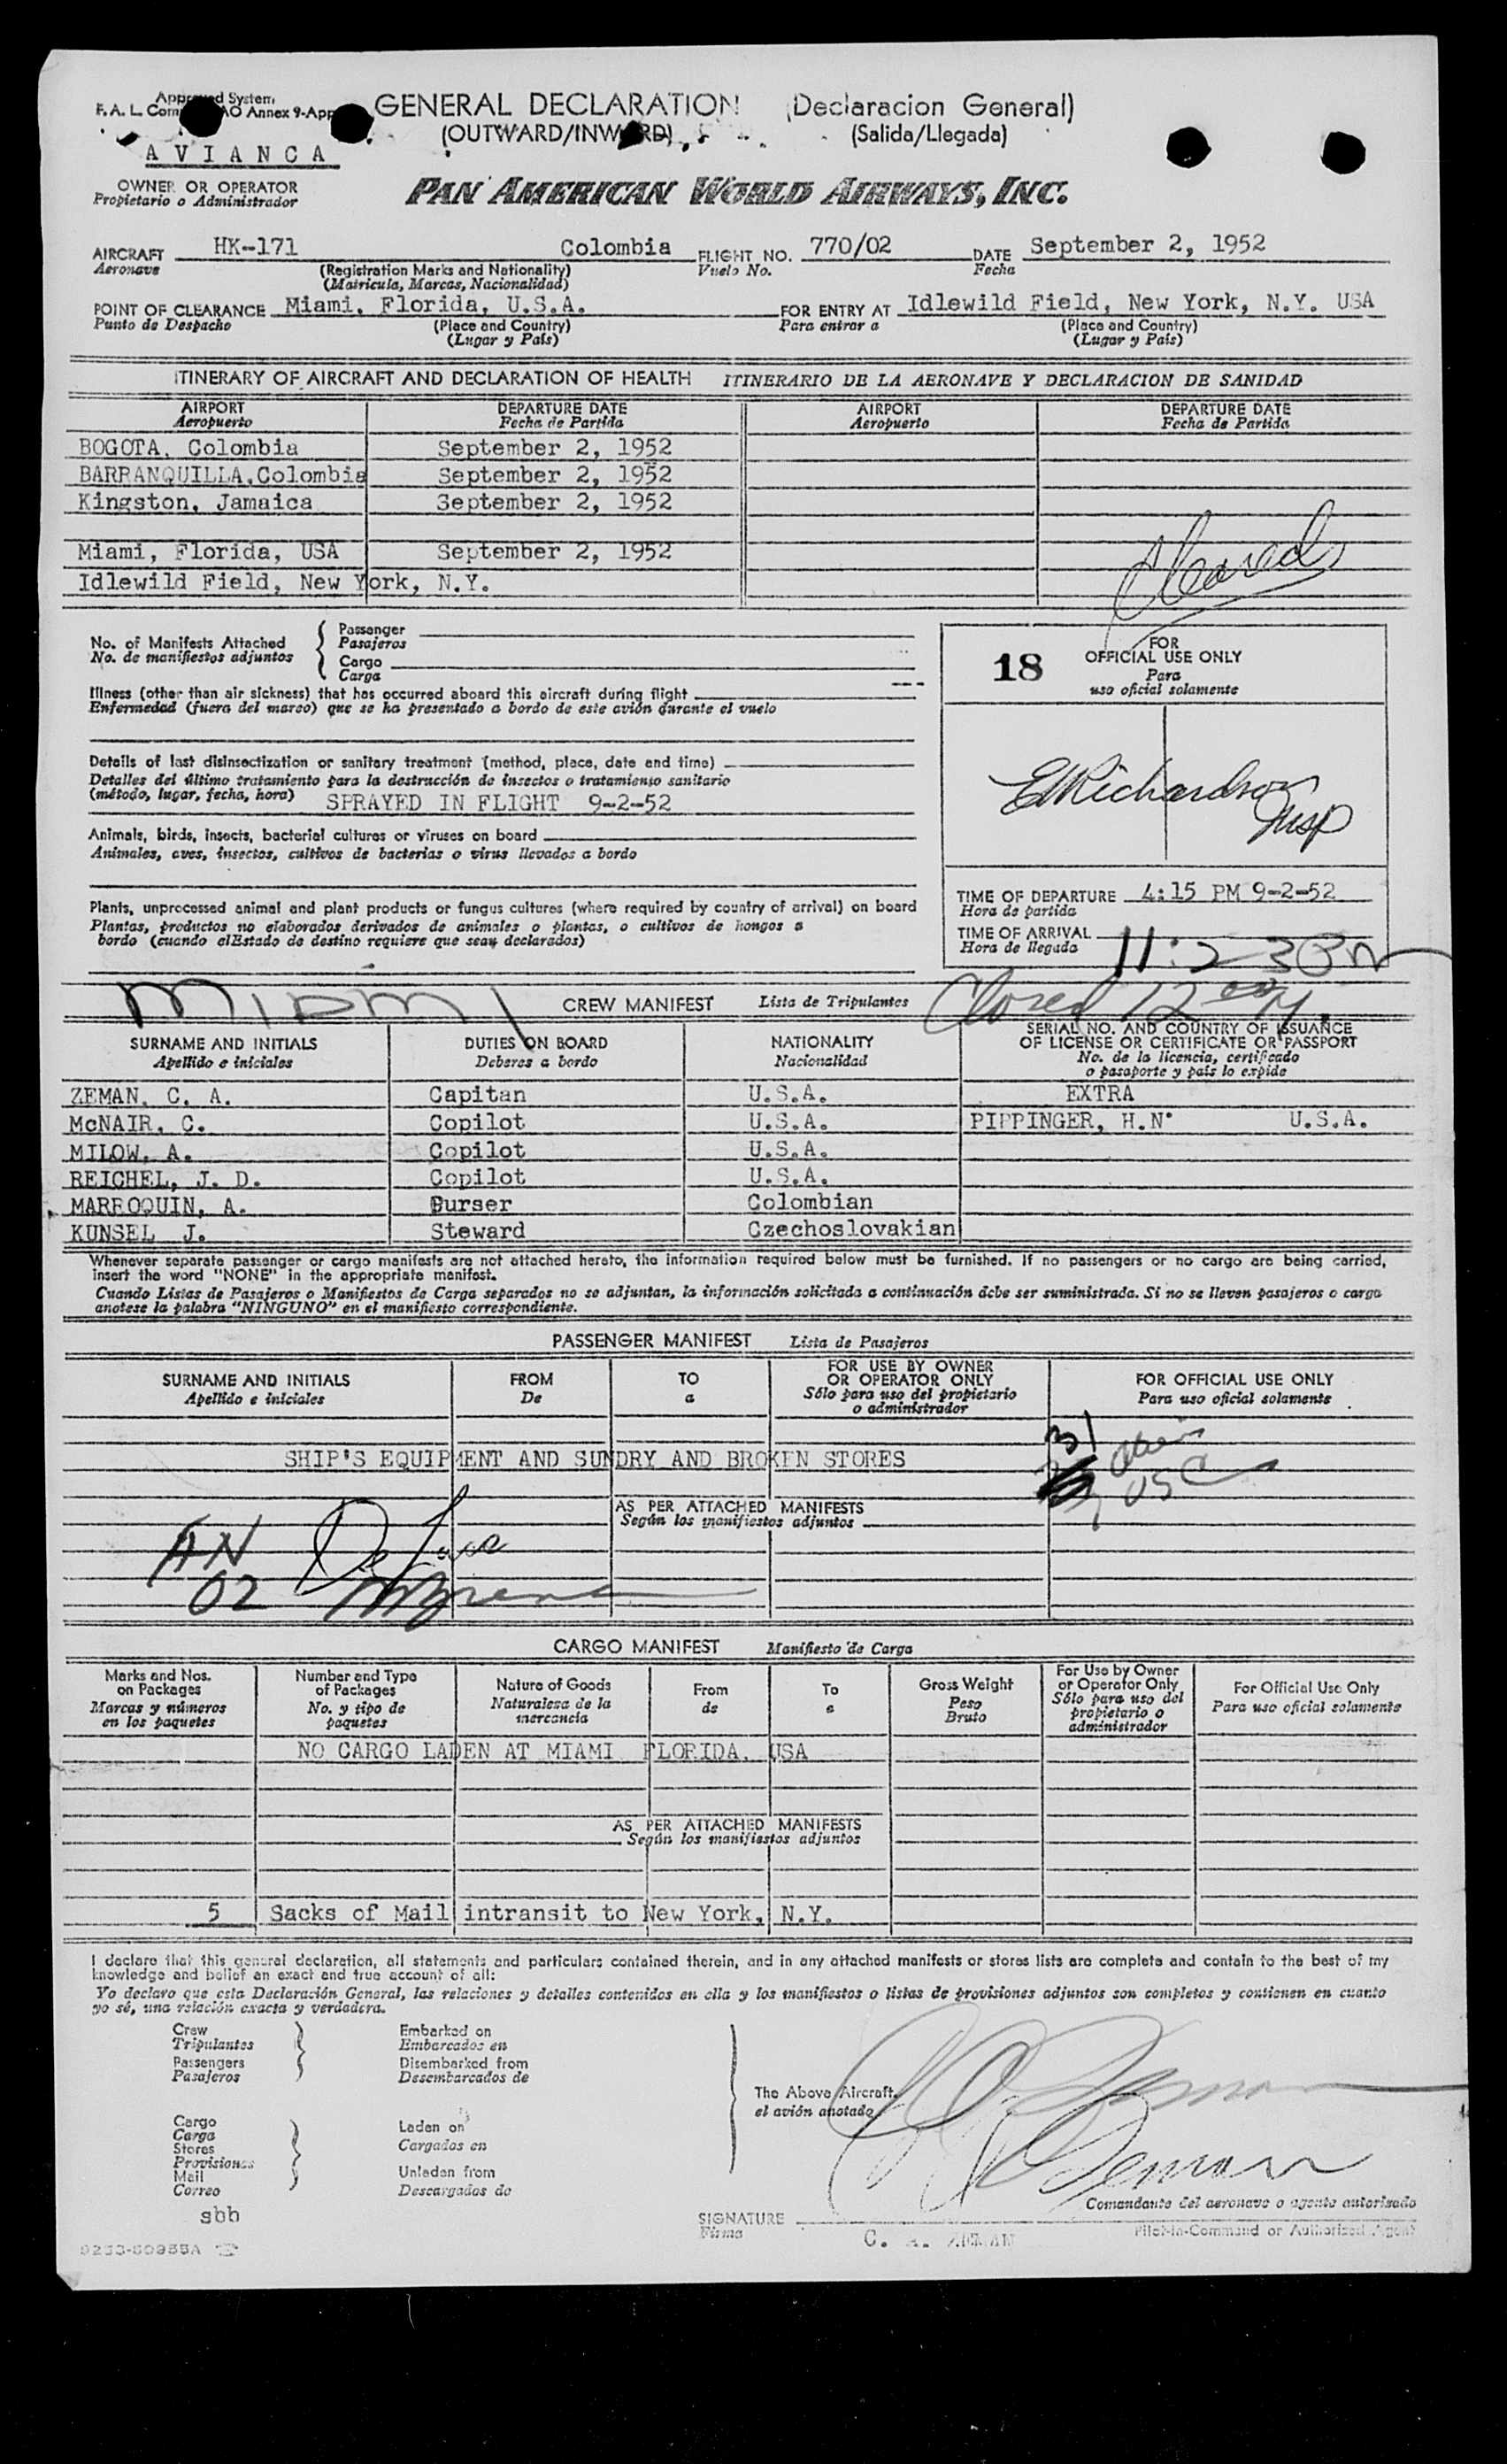 Approved System
F. A. L. Com AO Annex 9-App
GENERAL DECLARATION (Declaracion General)
(OUTWARD/INWARD) (Salida/Llegada)
AVIANCA
OWNER OR OPERATOR
Propietario o Administrador
PAN AMERICAN WORLD AIRWAYS, INC.
AIRCRAFT HK-171 Colombia FLIGHT NO. 770/02 DATE September 2, 1952
Aeronave (Registration Marks and Nationality) Vuelo No. Fecha
(Matricula, Marcas, Nacionalidad)
POINT OF CLEARANCE Miami, Florida, U.S.A. FOR ENTRY AT Idlewild Field, New York, N.Y. USA
Punto de Despacho (Place and Country) Para entrar a (Place and Country)
(Lugar y País) (Lugar y País)
ITINERARY OF AIRCRAFT AND DECLARATION OF HEALTH ITINERARIO DE LA AERONAVE Y DECLARACION DE SANIDAD
AIRPORT DEPARTURE DATE AIRPORT DEPARTURE DATE
Aeropuerto Fecha de Partida Aeropuerto Fecha de Partida
BOGOTA, Colombia September 2, 1952
BARRANQUILLA,Colombia September 2, 1952
Kingston, Jamaica September 2, 1952
Miami, Florida, USA September 2, 1952
Cleared
Idlewild Field, New York, N.Y.
No. of Manifests Attached
No. de manifiestos adjuntos
Passenger
Pasajeros
Cargo
Carga
18
FOR
OFFICIAL USE ONLY
Para
uso oficial solamente
Illness (other than air sickness) that has occurred aboard this aircraft during flight
Enfermedad (fuera del mareo) que se ha presentado a bordo de este avión durante el vuelo
Details of last disinsectization or sanitary treatment (method, place, date and time)
Detalles del último tratamiento para la destrucción de insectos o tratamiento sanitario
(método, lugar, fecha, hora) SPRAYED IN FLIGHT 9-2-52
E Richardson
Insp
Animals, birds, insects, bacterial cultures or viruses on board
Animales, aves, insectos, cultivos de bacterias o virus llevados a bordo
Plants, unprocessed animal and plant products or fungus cultures (where required by country of arrival) on board
Plantas, productos no elaborados derivados de animales o plantas, o cultivos de hongos a
bordo (cuando elEstado de destino requiere que sean declarados)
TIME OF DEPARTURE 4:15 PM 9-2-52
Hora de partida
TIME OF ARRIVAL 11:23 PM
Hora de llegada
MIAMI
Closed 12
CREW MANIFEST Lista de Tripulantes
SURNAME AND INITIALS DUTIES ON BOARD NATIONALITY SERIAL NO. AND COUNTRY OF ISSUANCE
OF LICENSE OR CERTIFICATE OR PASSPORT
Apellido e iniciales Deberes a bordo Nacionalidad No. de la licencia, certificado
o pasaporte y país lo expide
ZEMAN, C. A. Capitan U.S.A. EXTRA
McNAIR, C. Copilot U.S.A. PIPPINGER, H.N. U.S.A.
MILOW, A. Copilot U.S.A.
REICHEL, J. D. Copilot U.S.A.
MARROQUIN, A. Purser Colombian
KUNSEL J. Steward Czechoslovakian
Whenever separate passenger or cargo manifests are not attached hereto, the information required below must be furnished. If no passengers or no cargo are being carried,
insert the word "NONE" in the appropriate manifest.
Cuando Listas de Pasajeros o Manifiestos de Carga separados no se adjuntan, la información solicitada a continuación debe ser suministrada. Si no se lleven pasajeros o carga
anotese la palabra "NINGUNO" en el manifiesto correspondiente.
PASSENGER MANIFEST Lista de Pasajeros
SURNAME AND INITIALS FROM TO FOR USE BY OWNER OR OPERATOR ONLY FOR OFFICIAL USE ONLY
Apellido e iniciales De a Sólo para uso del propietario o administrador Para uso oficial solamente
31
SHIP'S EQUIPMENT AND SUNDRY AND BROKEN STORES
USC
AS PER ATTACHED MANIFESTS
Según los manifiestos adjuntos
AN
02
CARGO MANIFEST Manifiesto de Carga
Marks and Nos. on Packages Number and Type of Packages Nature of Goods From To Gross Weight For Use by Owner or Operator Only For Official Use Only
Marcas y números en los paquetes No. y tipo de paquetes Naturaleza de la mercancia de a Peso Bruto Sólo para uso del propietario o administrador Para uso oficial solamente
NO CARGO LADEN AT MIAMI FLORIDA, USA
AS PER ATTACHED MANIFESTS
Según los manifiestos adjuntos
5 Sacks of Mail intransit to New York, N.Y.
I declare that this general declaration, all statements and particulars contained therein, and in any attached manifests or stores lists are complete and contain to the best of my
knowledge and belief an exact and true account of all:
Yo declaro que esta Declaración General, las relaciones y detalles contenidos en ella y los manifiestos o listas de provisiones adjuntos son completos y contienen en cuanto
yo sé, una relación exacta y verdadera.
Crew Embarked on
Tripulantes Embarcados en
Passengers Disembarked from
Pasajeros Desembarcados de
The Above Aircraft.
el avión anotado
Cargo Laden on
Carga Cargados en
Stores
Provisiones
Mail Unladen from
Correo Descargados de
C A Zeman
C A Zeman
Comandante del aeronave o agente autorizado
sbb
SIGNATURE
Firma
C. A. ZEMAN
Pilot-in-Command or Authorized Agent